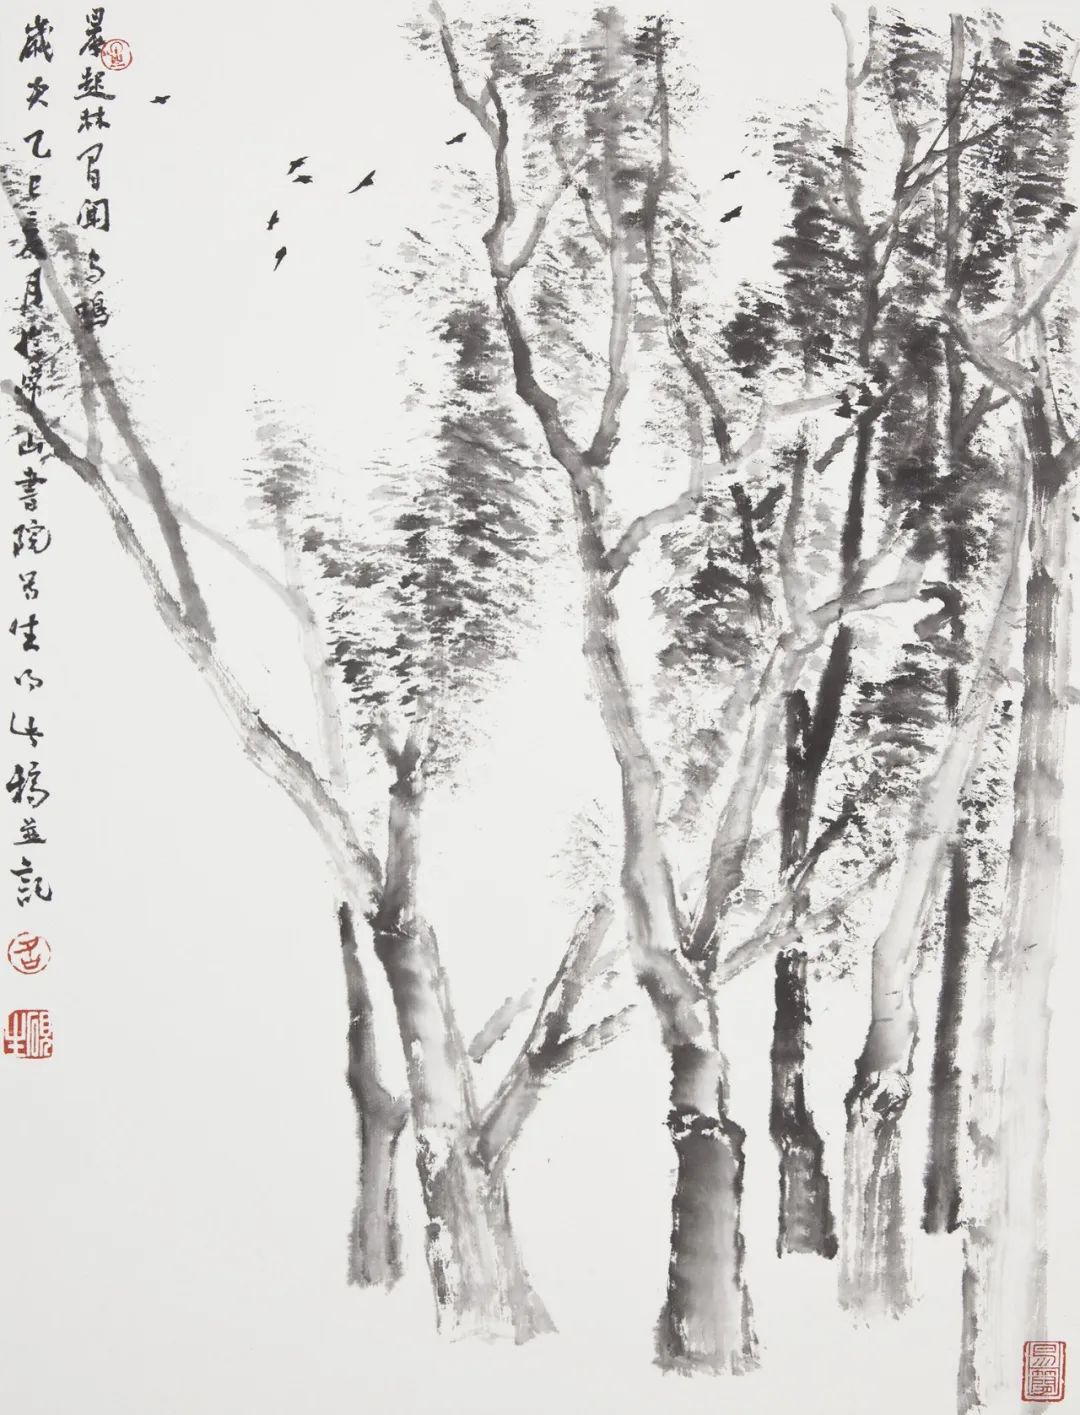 晨起林間聞鳥鳴
歲次乙巳夏月 山書院寫生得此稿並記